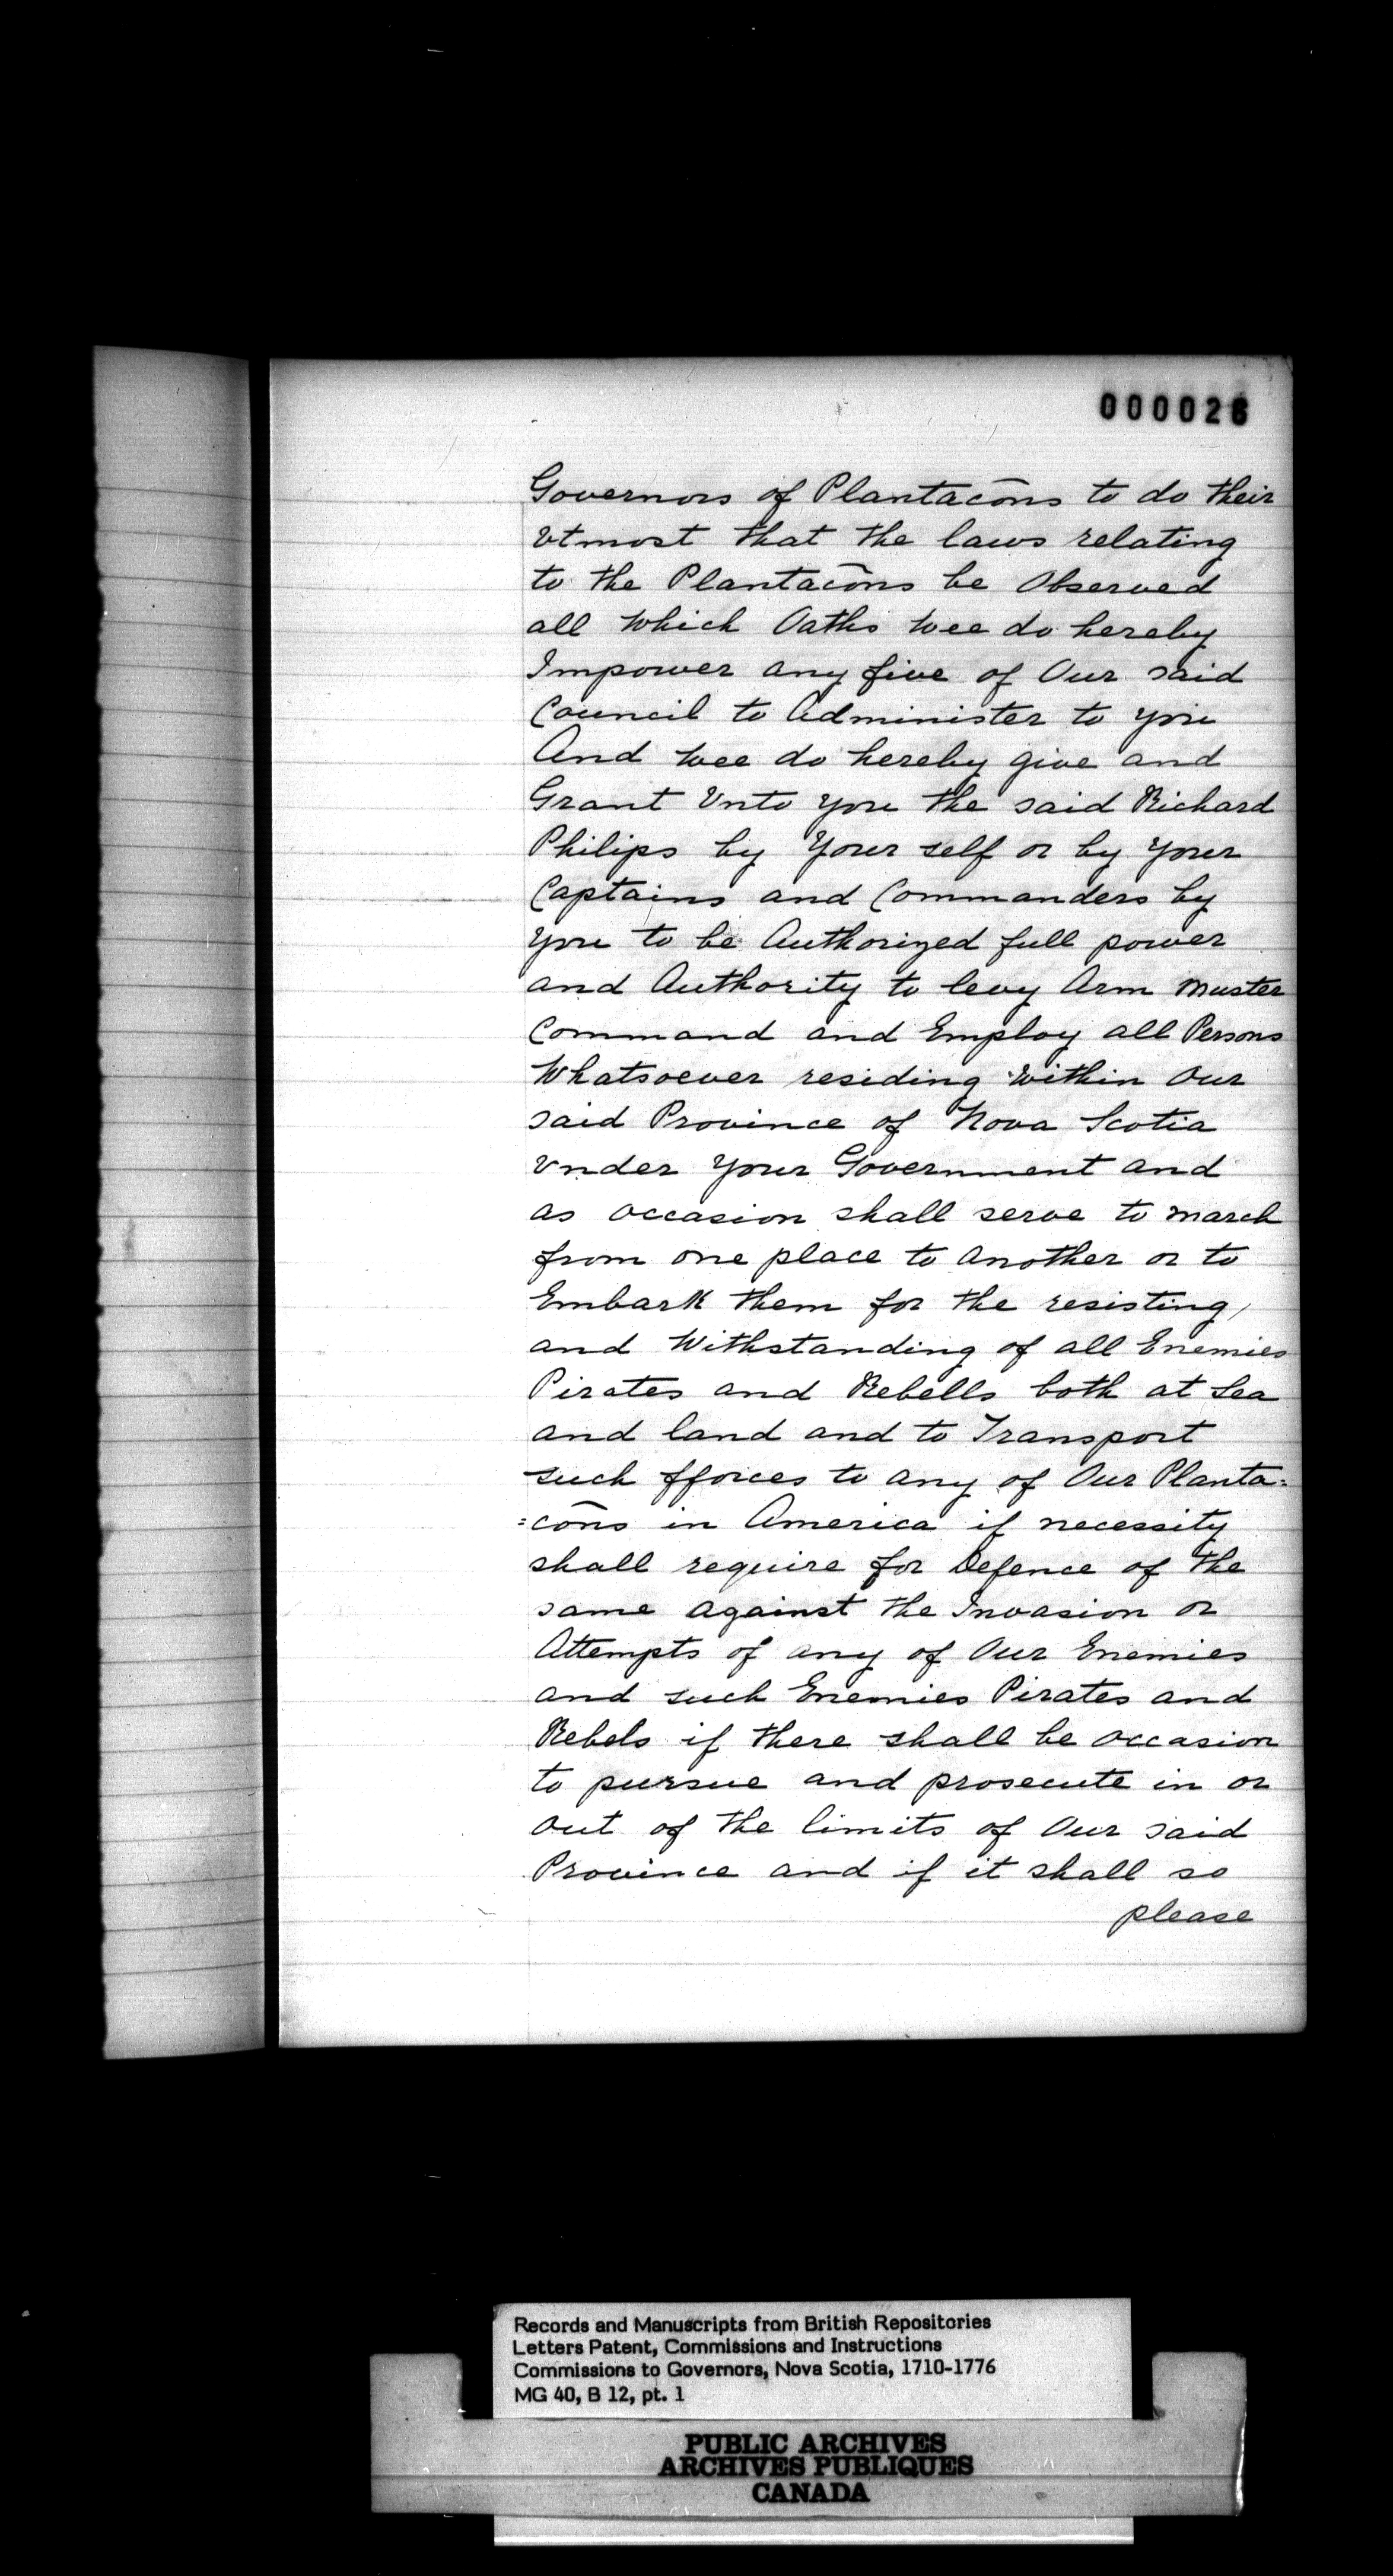 000026
Governors of Plantacōns to do their
vtmost that the laws relating
to the Plantacōns be Observed
all which Oaths wee do hereby
Impower any five of Our said
Council to Administer to you
And wee do hereby give and
Grant Vnto you the said Richard
Philips by Your self or by your
Captains and Commanders by
you to be Authorized full power
and Authority to levy Arm muster
Command and Employ all Persons
Whatsoever residing within Our
said Province of Nova Scotia
vnder your Government and
as occasion shall serve to march
from one place to another or to
Embark them for the resisting,
and Withstanding of all Enemies
Pirates and Rebells both at Sea
and land and to Transport
such fforces to any of Our Planta=
=cōns in America if necessity
shall require for Defence of the
same against the Invasion or
Attempts of any of Our Enemies
and such Enemies Pirates and
Rebels if there shall be occasion
to pursue and prosecute in or
out of the limits of Our said
Province and if it shall so
please
Records and Manuscripts from British Repositories
Letters Patent, Commissions and Instructions
Commissions to Governors, Nova Scotia, 1710-1776
MG 40, B 12, pt. 1
PUBLIC ARCHIVES
ARCHIVES PUBLIQUES
CANADA